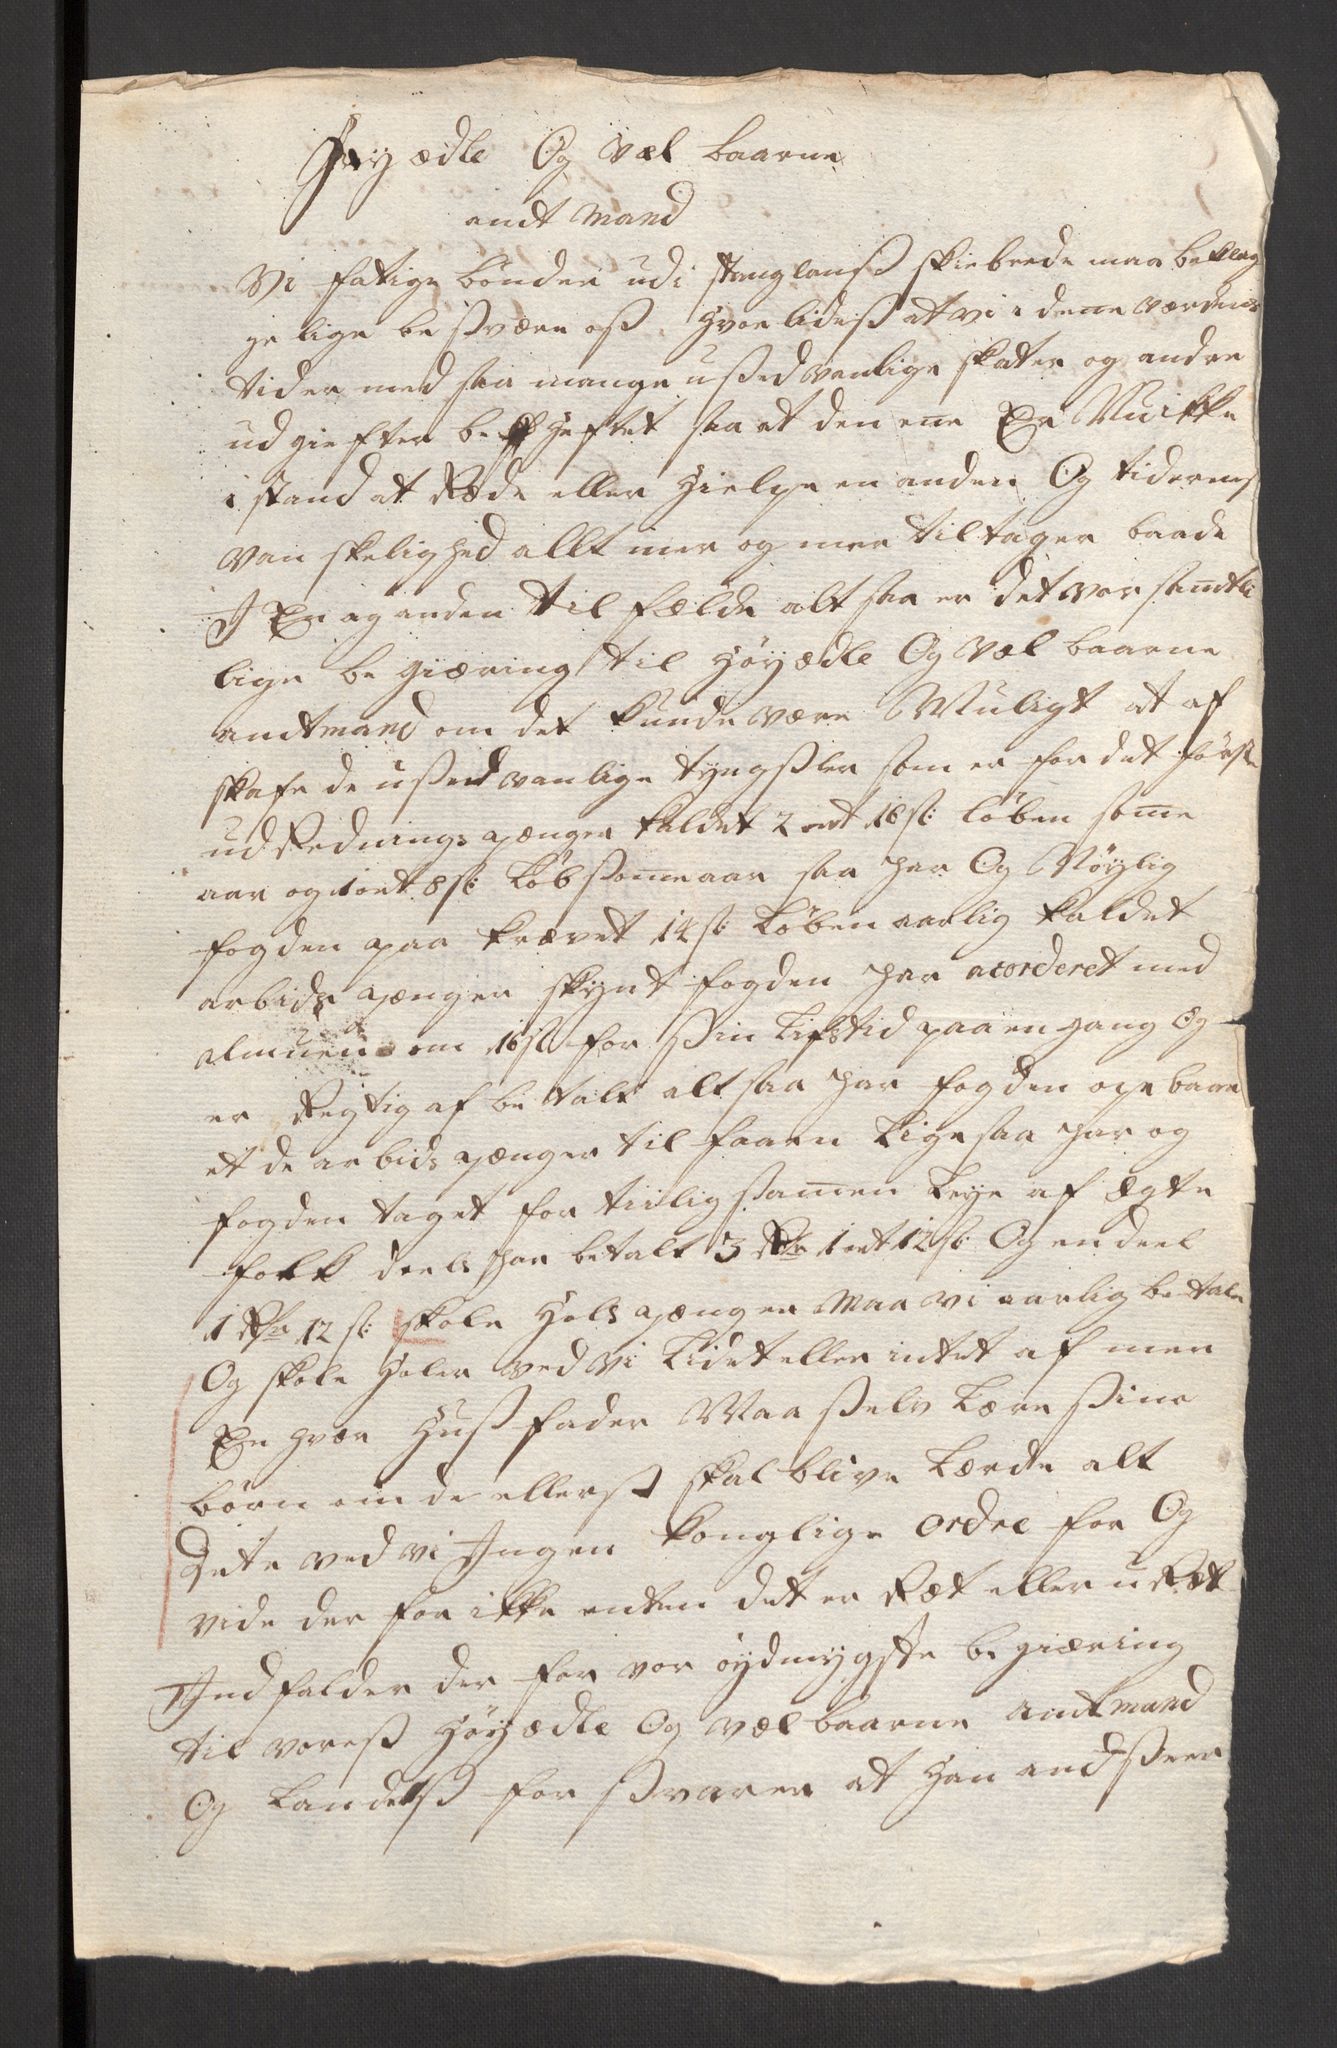 Høy ædle Og Væl baarne
amt Mand
Vi fatige bønder udi Stanglanß skibrede maa beklag
ge lige be sware oß hvorlideß at vi i dene Værdens
tider med saa mange ußedvanlige skater og andre
ud giefter be heftet saa at den ene Er Nu ikke
i stand atRæde eller Hielpe en anden Og tidernes
Van skelighed allt mer og mer til tager baade
I En og anden til fælde alt saa er det vor samtli
lige be giæring til Høyædle Og Væl baarne
amtmand om det kunde være Muligt at af
skafe de ußedvanlige tyngßler som er for det først
ud Rednings penger kaldet 2 ort 16 s: løben some
aar og 1 ort 8 s: Løb some aar saa har Og Nøylig
fogden paa krævet 14 s: Løben aarlig kaldet
arbids penger skynt fogden har acorderet med
almuen om 16 s for ßin Lifstid paa en gang Og
er Regtig af be talt alt saa har fogden ope baar
et de arbids penger til faarn Lige saa har og
fogden taget for tiilig samen Leye af Ægte
folk deels har betalt 3 Rdr 1 ort 12 s: Og en deel
1 Rdr 12 s: skole Hols penger Maa vi aarlig be tale
Og skole Holer ved vi Lidet eller intet af men
En hvær Huß fader Maa ßelv Lære ßine
børn om de ellerß skal blive Lærde alt
Dete ved vi Ingen konglige ordre for Og
vide der for ikke enten det er Ræt eller u Ræt
Ind falder der for vor øydmygste be giæring
til voreß Høyædle Og Væl baarne amtmand
Og Landetß for ßvarer at Han and ßeer